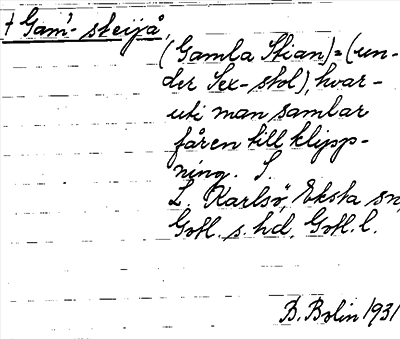 † Gam'- steijå,
(Gamla Stian) = (un-
der Sex-stol), hvar-
uti man samlar
fåren till klipp-
ning. S.
L. Karlsö, Eksta sn,
Gotl. s. hd, Gotl. l.
B. Bolin 1931